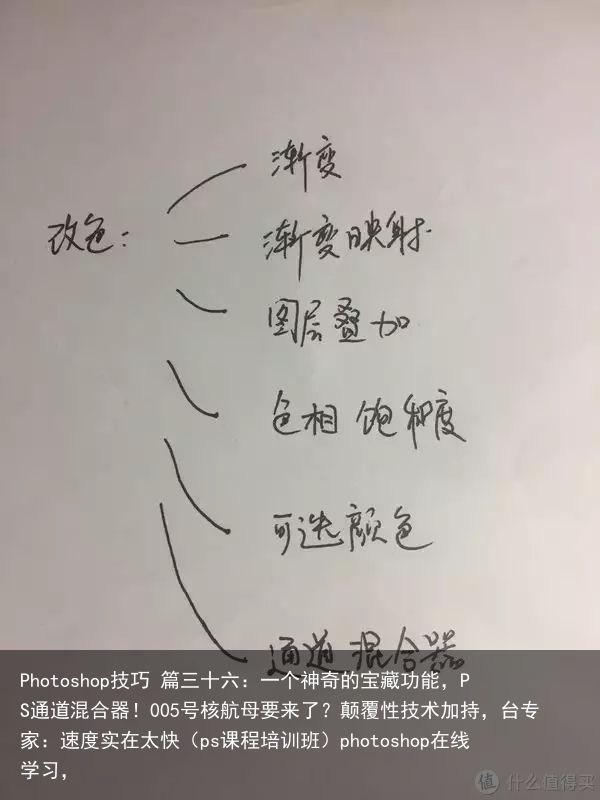 渐变
改色：
渐变映射
图层叠加
色相 饱和度
可选颜色
通道混合器
Photoshop技巧 篇三十六：一个神奇的宝藏功能，P
S通道混合器！005号核航母要来了？颠覆性技术加持，台专
家：速度实在太快（ps课程培训班）photoshop在线
学习，
值 什么值得买